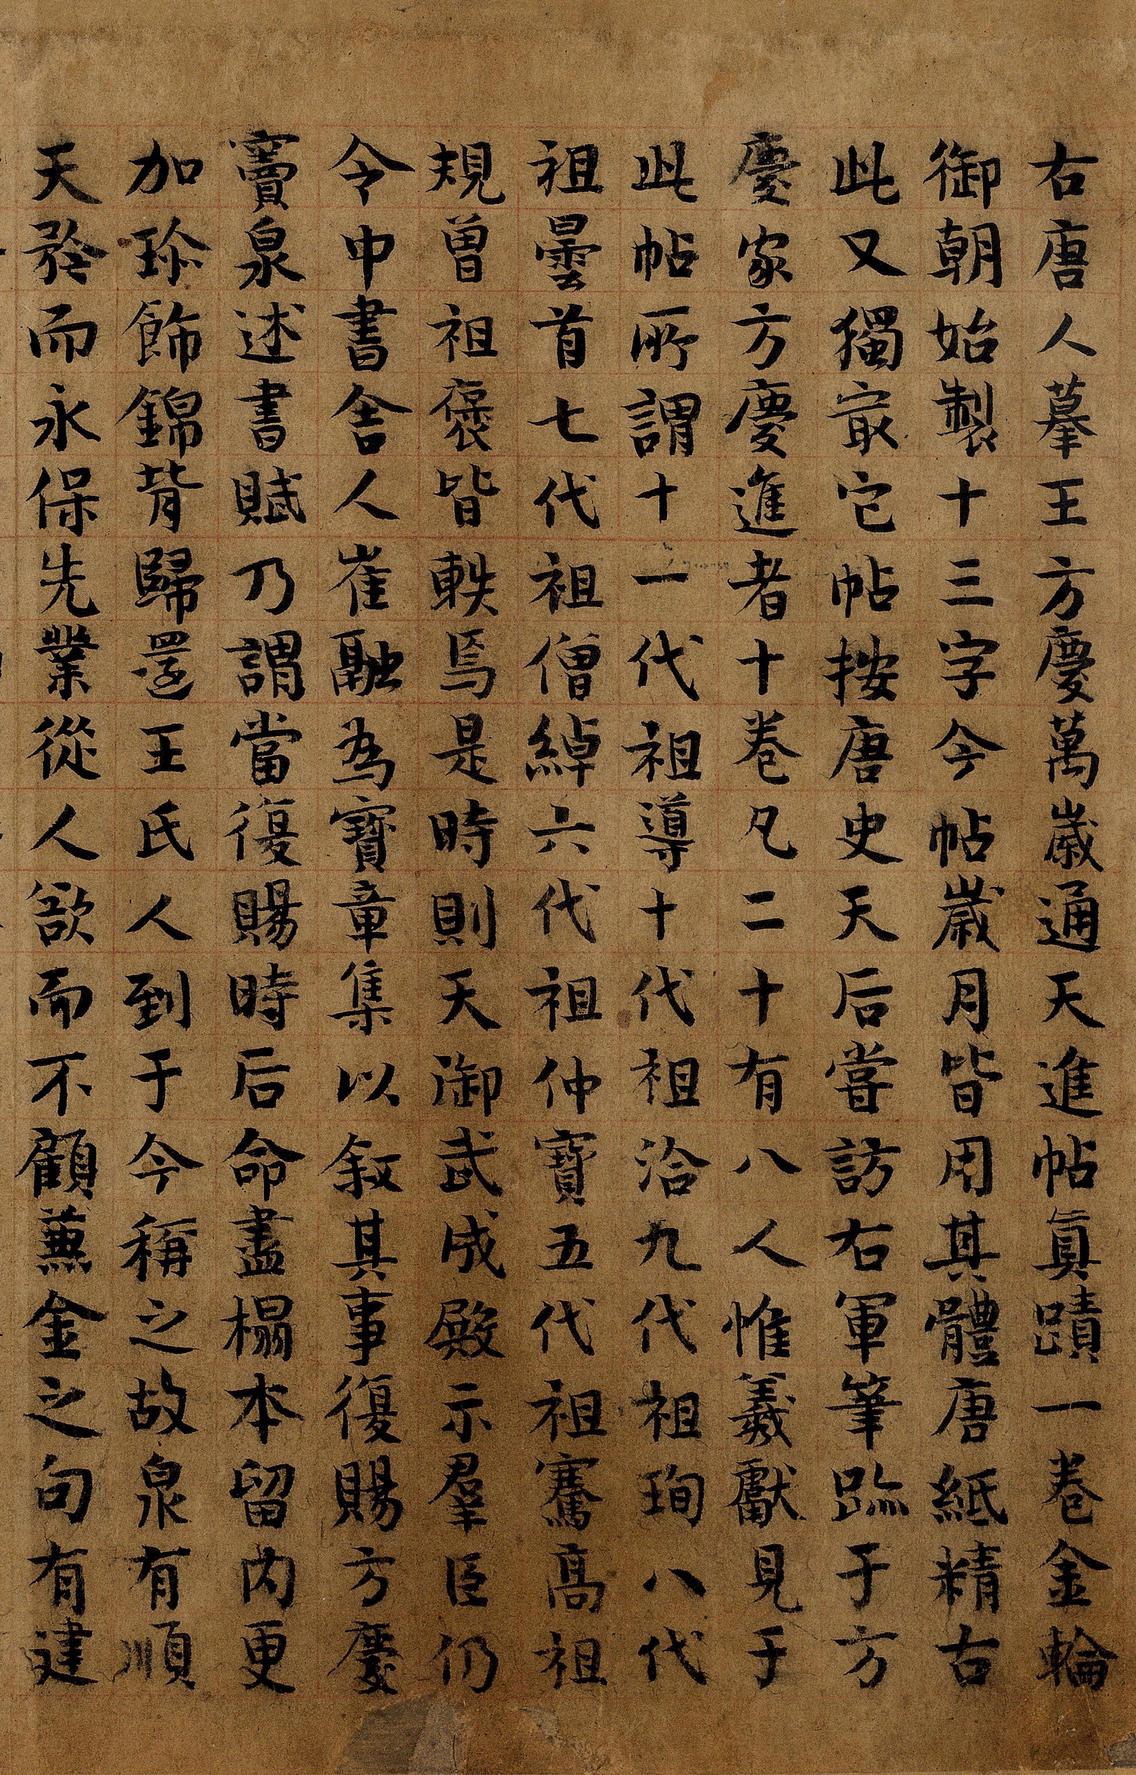 右唐人摹王方慶萬歲通天進帖真蹟一卷金輪
御朝始製十三字今帖歲月皆用其體唐紙精古
此又獨㝡它帖按唐史天后嘗訪右軍筆跡于方
慶家方慶進者十卷凡二十有八人惟羲獻見于
此帖所謂十一代祖導十代祖洽九代祖珣八代
祖曇首七代祖僧綽六代祖仲寶五代祖騫高祖
規曾祖褒皆軼焉是時則天御武成殿示羣臣仍
令中書舍人崔融為寶章集以敘其事復賜方慶
竇泉述書賦乃謂當復賜時后命盡榻本留內更
加珍飾錦背歸還王氏人到于今稱之故泉有順
天矜而永保先業從人欲而不顧兼金之句有建